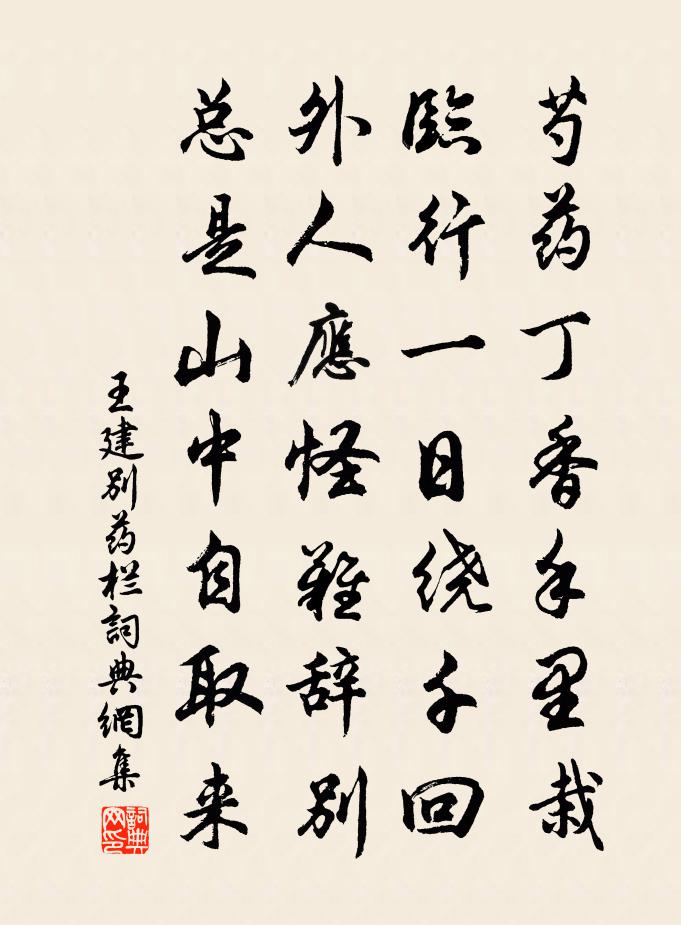 芍药丁香手里栽
臨行一日绕千回
外人應怪難辞别
总是山中自取来
王建别药栏詞典網集
詞典网印